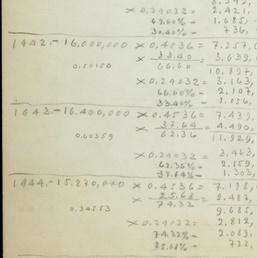 × 0.24032 = 2,421,
69.60% - 1,685,
30.40% - 736,
1942.- 16,000,000 × 0.4536 = 7.257,6
× 33.40 = 3,639,
0.50150 66.60
10.897,
× 0.24032 = 3,163,
66.60% - 2,107,
33.40% - 1,056,
1943.- 16,400,000 × 0.4536 = 7.439,
× 37.64 = 4,490,
0.60359 62.36
11.929,
× 0.24032 = 3,463,
62.36% = 2,159,
37.64% = 1,303,
1944.- 15,870,000 × 0.4536 = 7,198,
× 25.68 = 2,487,
0.34553 74.32
9.685,
× 0.24032 = 2,812,
74.32% = 2,089,
25.68% = 722,